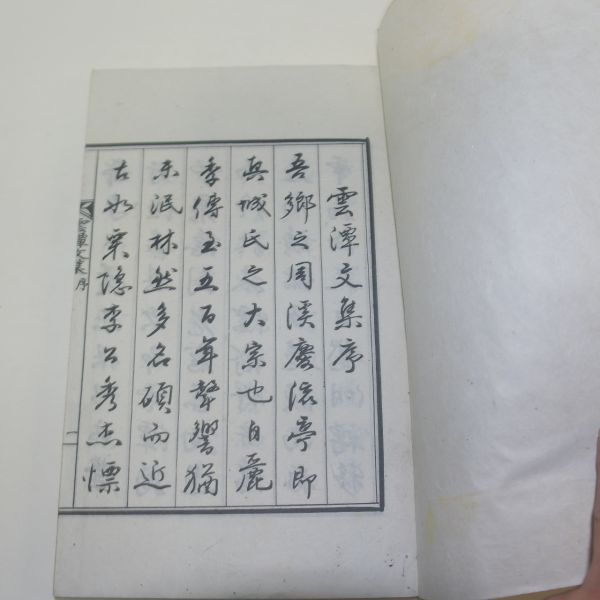 雲潭文集序
吾鄉之周溪慶流亭即
真城氏之大宗也自麗
季傳至五百年聲響猶
未泯林然多名碩而近
古如栗隱李公秀杰慓
雲潭文集序
一